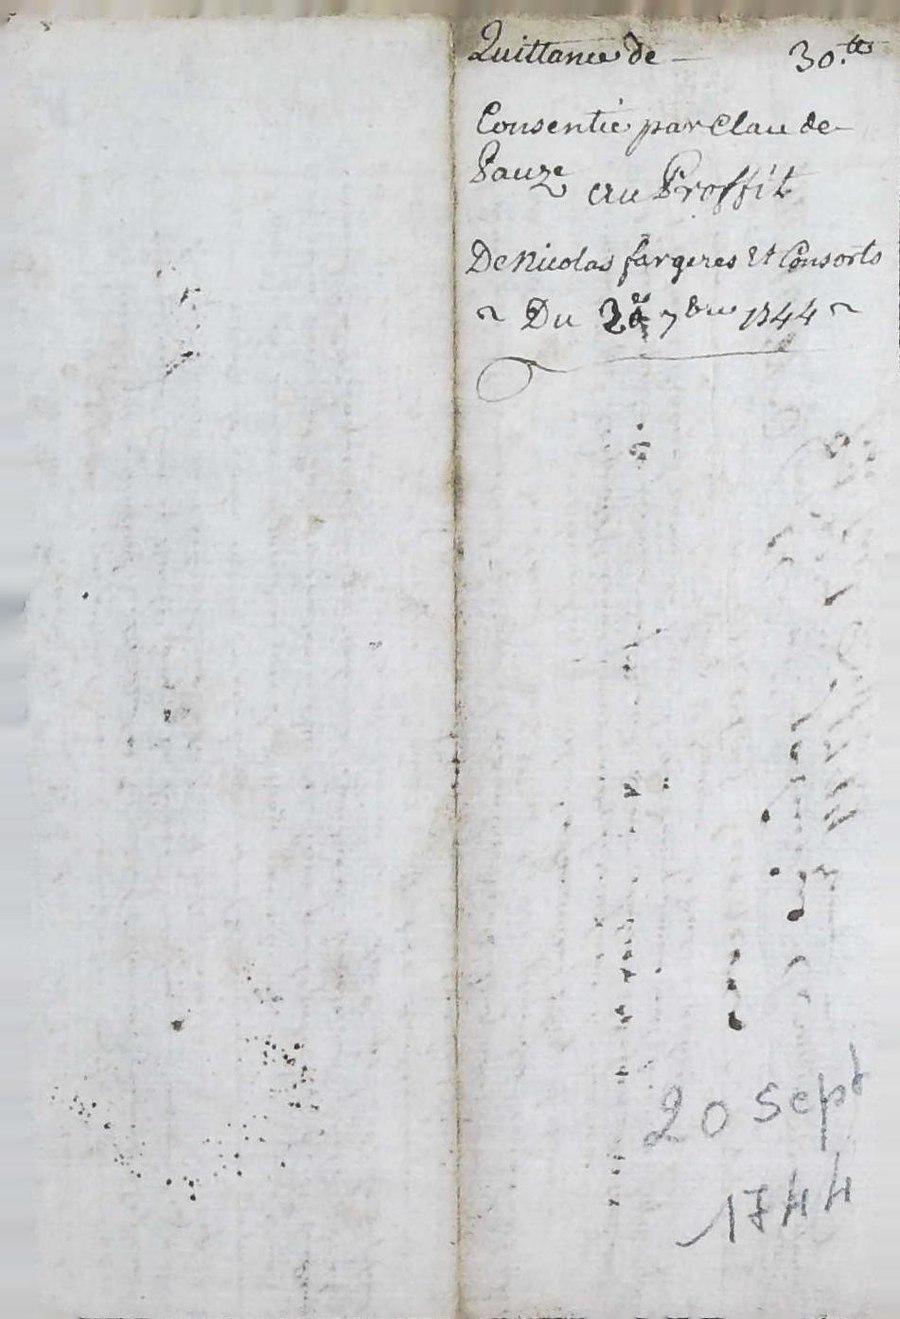 Quittance de — 30.tts
Consentie par Clau de
Pauze au Proffit
De Nicolas fargeres Et Consorts
~ Du 7bre 1744 ~
20 sept
1744